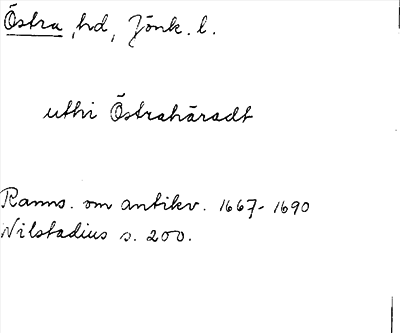 Östra, hd, Jönk. l.
uthi Östrahäradt
Ranns. om antikv. 1667-1690
Nilstadius s. 200.